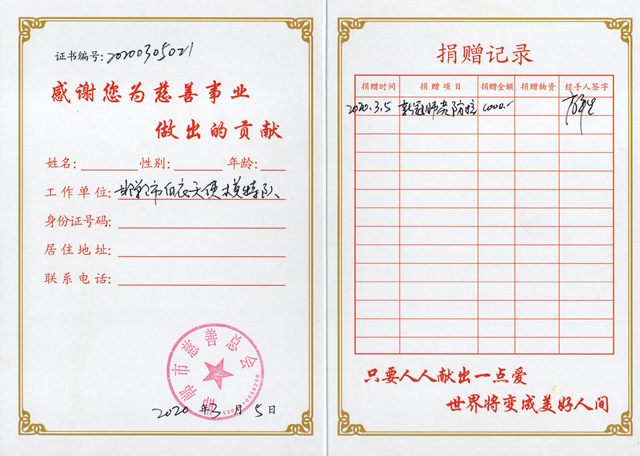 证书编号: 20200305021
感谢您为慈善事业
做出的贡献
姓名: 性别: 年龄:
工作单位: 邯郸市白衣天使模特队
身份证号码:
居住地址:
联系电话:
邯郸市慈善总会
2020 年 3 月 5 日
捐赠记录
捐赠时间 捐赠项目 捐赠金额 捐赠物资 经手人签字
2020.3.5 新冠肺炎防控 1000.-
只要人人献出一点爱
世界将变成美好人间